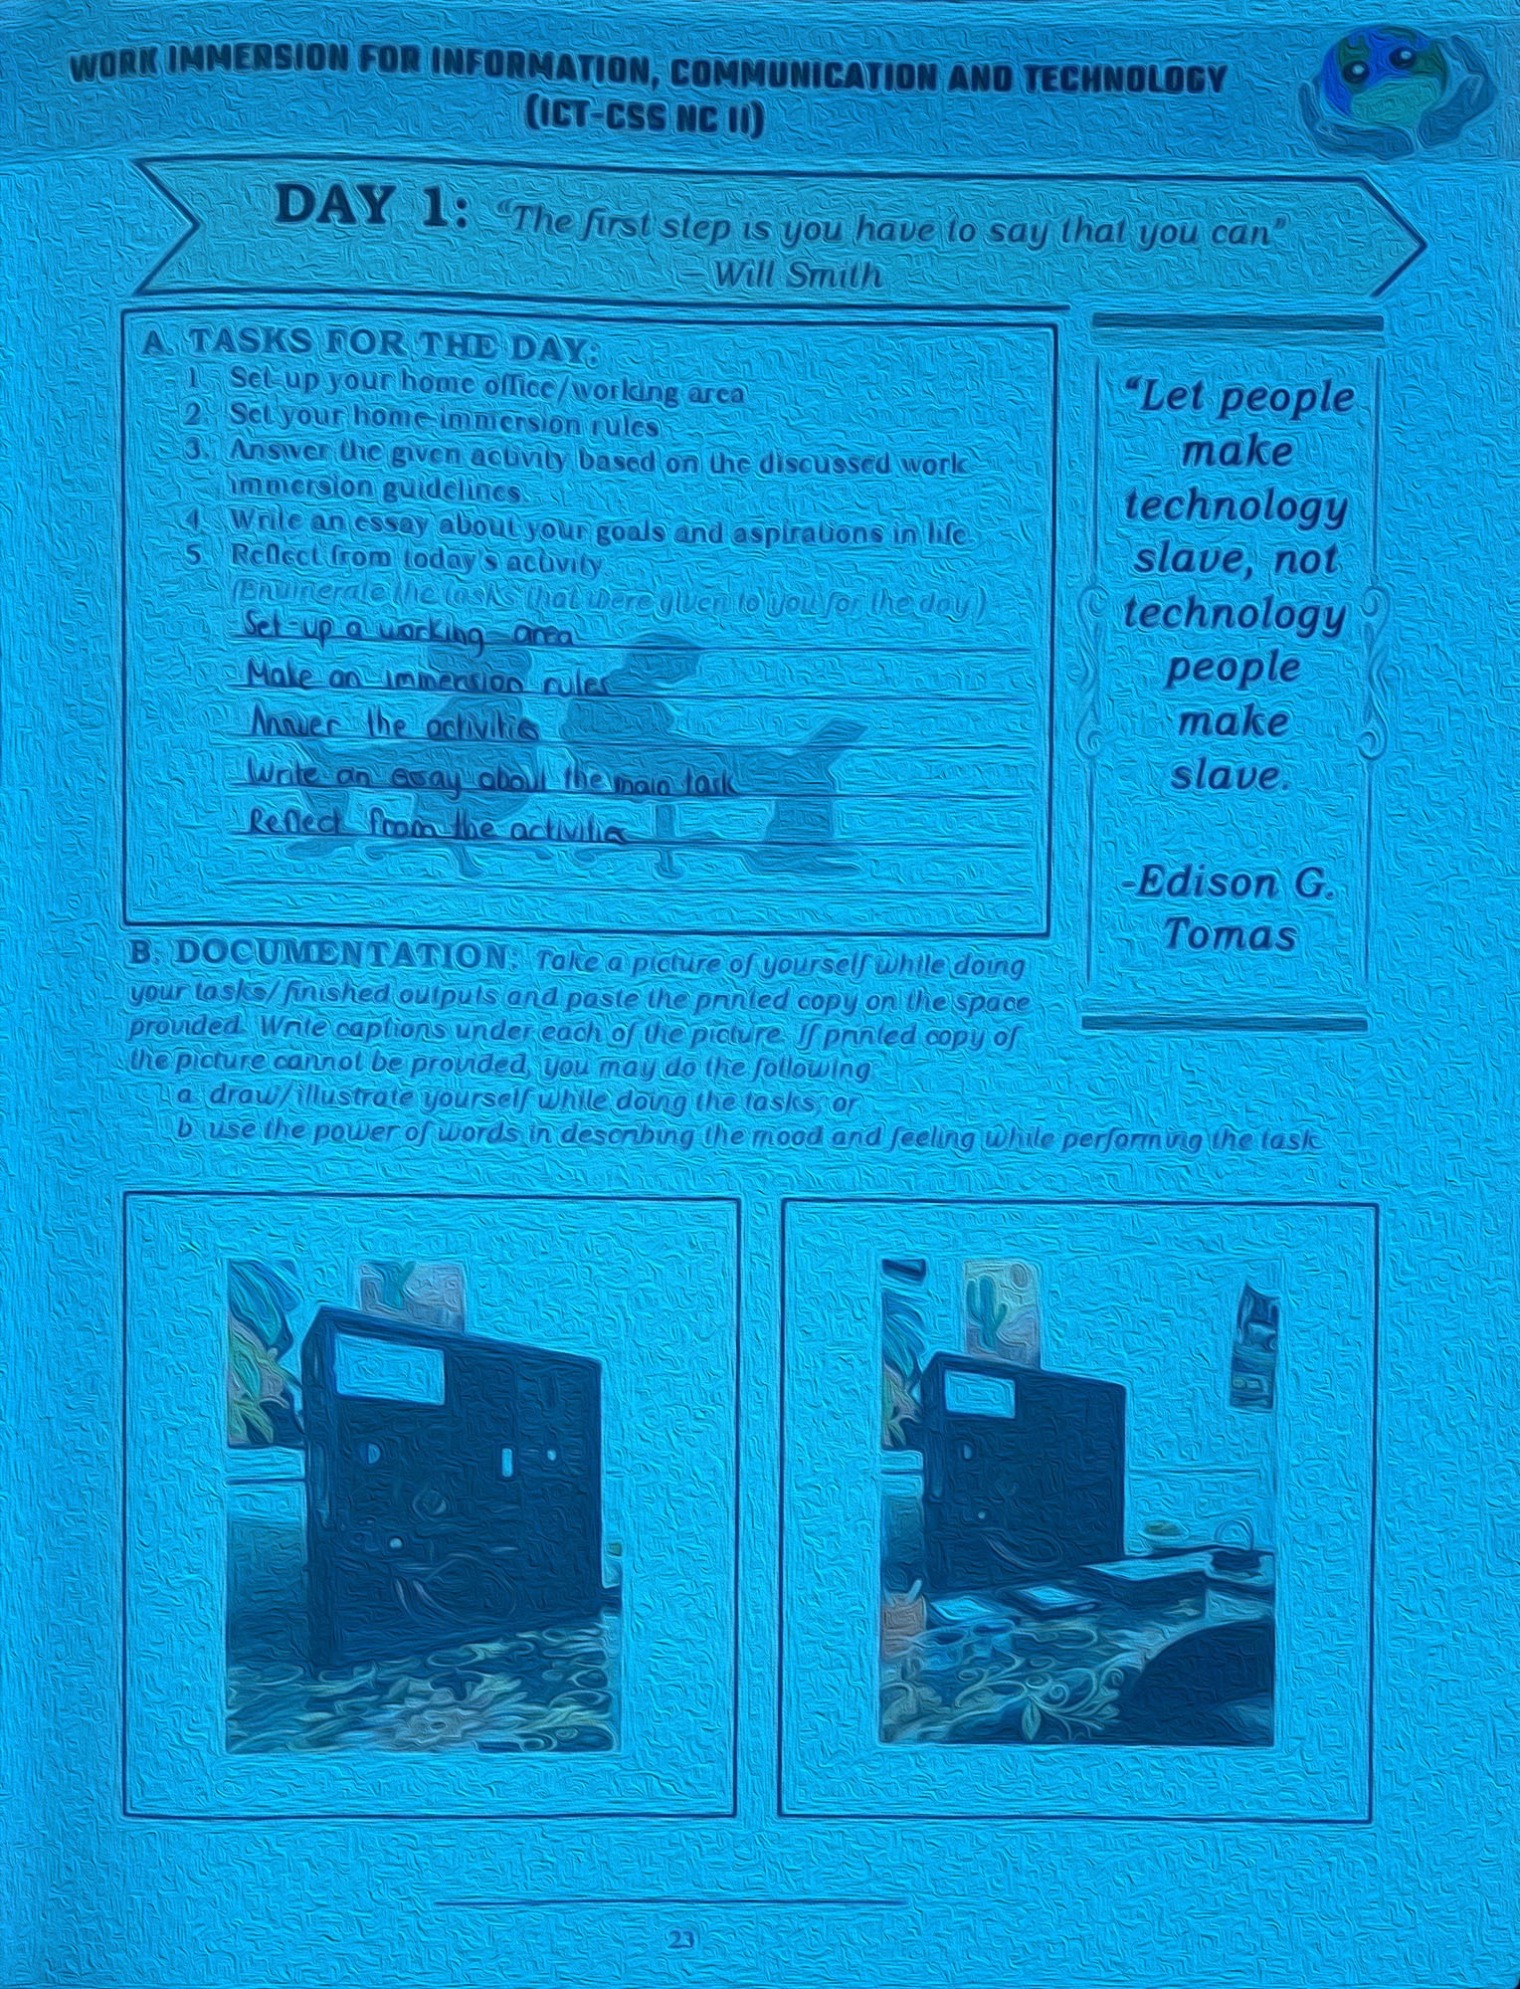 WORK IMMERSION FOR INFORMATION, COMMUNICATION AND TECHNOLOGY
(ICT-CSS NC II)
DAY 1: "The first step is you have to say that you can"
– Will Smith
A. TASKS FOR THE DAY:
1. Set-up your home office/working area
2. Set your home-immersion rules
3. Answer the given activity based on the discussed work
immersion guidelines.
4. Write an essay about your goals and aspirations in life.
5. Reflect from today's activity
(Enumerate the tasks that were given to you for the day.)
Set-up a working area
Make an immersion rules
Answer the activities
Write an essay about the main task
Reflect from the activities
"Let people
make
technology
slave, not
technology
people
make
slave.
-Edison G.
Tomas
B. DOCUMENTATION: Take a picture of yourself while doing
your tasks/finished outputs and paste the printed copy on the space
provided. Write captions under each of the picture. If printed copy of
the picture cannot be provided, you may do the following
a. draw/illustrate yourself while doing the tasks, or
b. use the power of words in describing the mood and feeling while performing the task
23